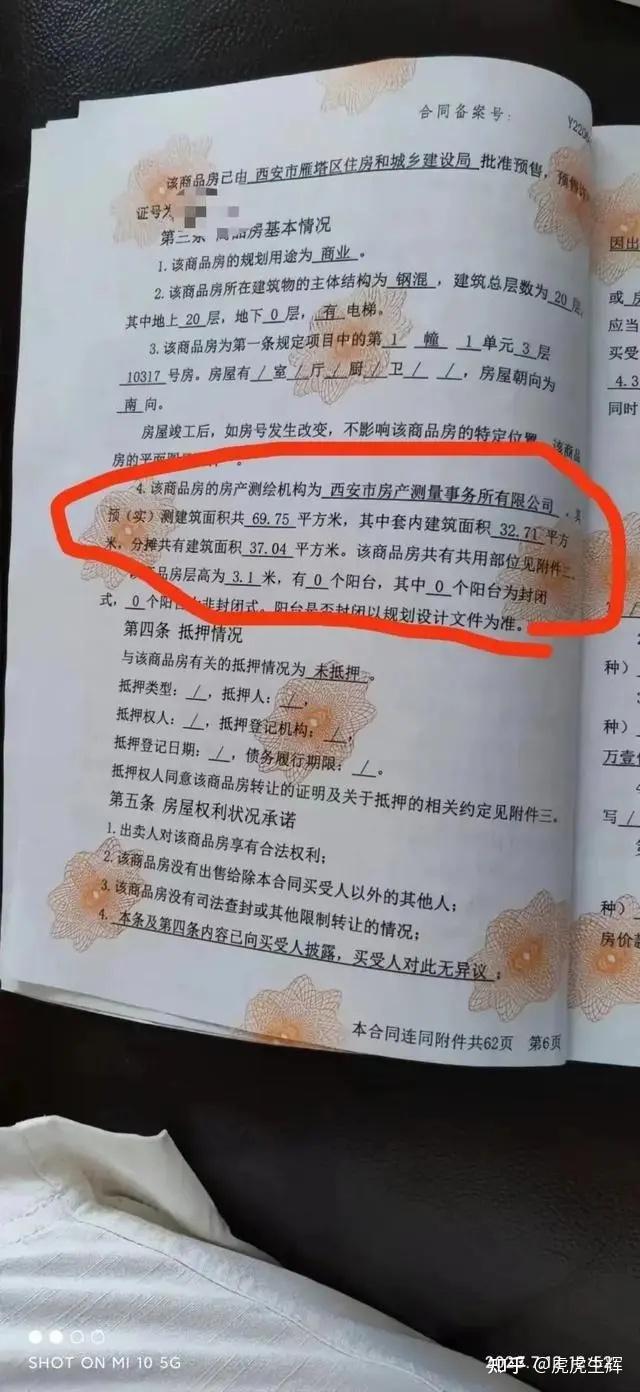 合同备案号:
Y2206
该商品房已由 西安市雁塔区住房和城乡建设局 批准预售，预售许
证号为
第三条 商品房基本情况
1.该商品房的规划用途为 商业 。
2.该商品房所在建筑物的主体结构为 钢混 ，建筑总层数为 20 层，
其中地上 20 层，地下 0 层， 有 电梯。
3.该商品房为第一条规定项目中的第 1 幢 1 单元 3 层
10317 号房。房屋有 / 室 / 厅 / 厨 / 卫 / / ，房屋朝向为
南 向。
房屋竣工后，如房号发生改变，不影响该商品房的特定位置。该商品
房的平面图
4.该商品房的房产测绘机构为 西安市房产测量事务所有限公司 ，其
预（实）测建筑面积共 69.75 平方米，其中套内建筑面积 32.71 平方
米，分摊共有建筑面积 37.04 平方米。该商品房共有共用部位见附件二。
商品房层高为 3.1 米，有 0 个阳台，其中 0 个阳台为封闭
式， 0 个阳台为非封闭式。阳台是否封闭以规划设计文件为准。
第四条 抵押情况
与该商品房有关的抵押情况为 未抵押 。
抵押类型: / ，抵押人: / ，
抵押权人: / ，抵押登记机构: / ，
抵押登记日期: / ，债务履行期限: / 。
抵押权人同意该商品房转让的证明及关于抵押的相关约定见附件三。
第五条 房屋权利状况承诺
1.出卖人对该商品房享有合法权利；
2.该商品房没有出售给除本合同买受人以外的其他人；
3.该商品房没有司法查封或其他限制转让的情况；
4. 本条及第四条内容已向买受人披露，买受人对此无异议 ；
本合同连同附件共62页 第6页
因出
或
应当
买受
4.3
同时
种）
种）
万壹
写 /
种）
房价款
SHOT ON MI 10 5G
知乎 @虎虎生辉